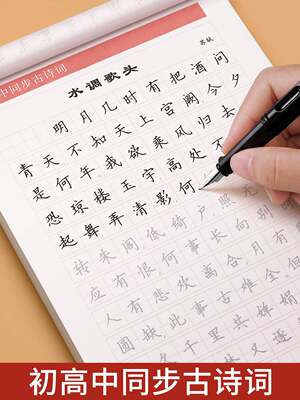 中同步古诗词
水调歌头
苏轼
明月几时有把酒问
青天不知天上宫阙今夕
是何年我欲乘风归去
恐琼楼玉宇高处
起舞弄清影何
转朱阁低绮户照无
应有恨何事长向别
人有悲欢离合月有
圆缺此事古难全但
久千里共婵娟
初高中同步古诗词